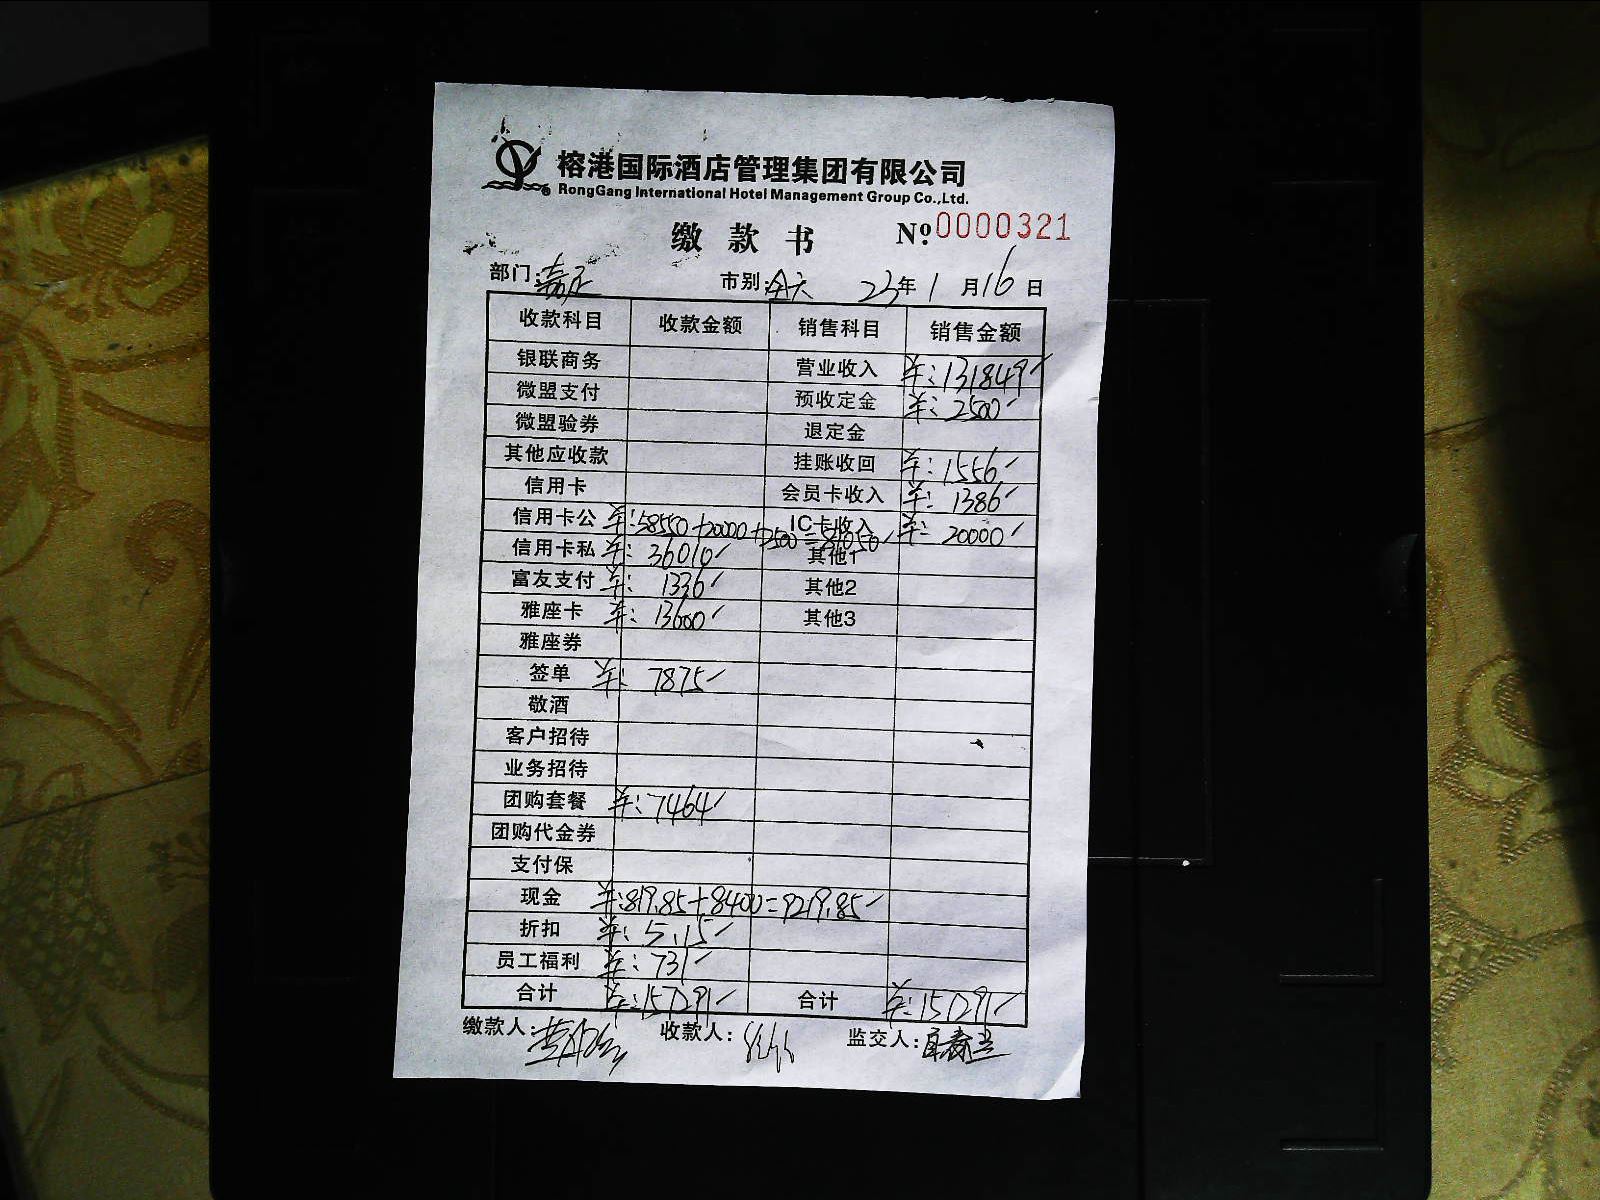 榕港国际酒店管理集团有限公司
RongGang International Hotel Management Group Co.,Ltd.
缴款书 Nº:0000321
部门: 市别:全天 23年1月16日
收款科目 收款金额 销售科目 销售金额
银联商务 营业收入 羊:131849
微盟支付 预收定金 羊:2500
微盟验券 退定金
其他应收款 挂账收回 羊:1556
信用卡 会员卡收入 羊:1386
信用卡公 羊:58550+20000+2500=81050 IC卡收入 羊:20000
信用卡私 羊:36010 其他1
富友支付 羊:1336 其他2
雅座卡 羊:13600 其他3
雅座券
签单 羊:7875
敬酒
客户招待
业务招待
团购套餐 羊:7464
团购代金券
支付保
现金 羊:819.85+8400=9219.85
折扣 羊:5.15
员工福利 羊:731
合计 羊:157291 合计 羊:157291
缴款人: 收款人: 监交人: